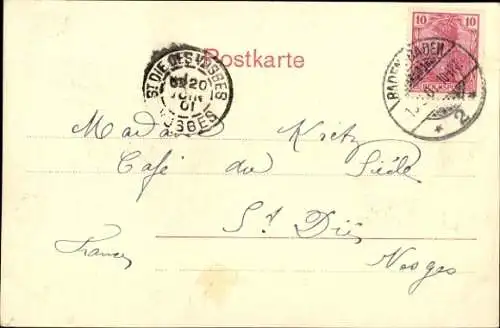 Postkarte
10 10
ST DIE DES VOSGES
20
JUIN
01
VOSGES
BADEN-BADEN
* 2 *
Madame Kretz
Café du Siècle
St Dié
France
Vosges